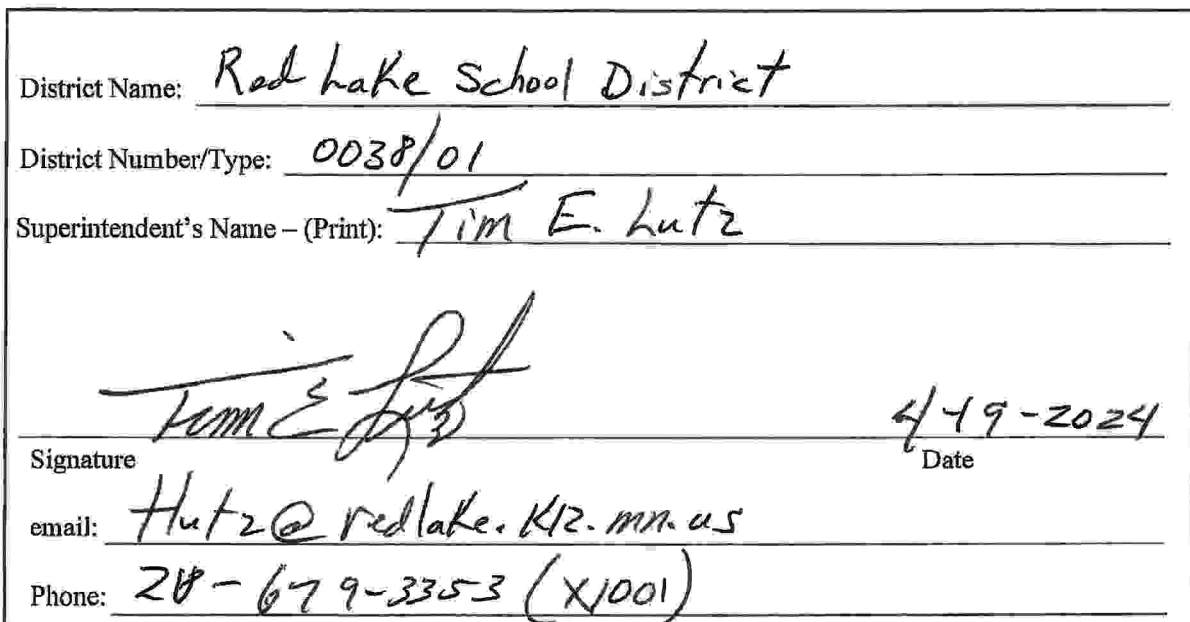 District Name: Red Lake School District
District Number/Type: 0038/01
Superintendent's Name – (Print): Tim E. Lutz
Tim E Lutz
4-19-2024
Signature Date
email: tlutz@redlake.k12.mn.us
Phone: 218-679-3353 (X1001)